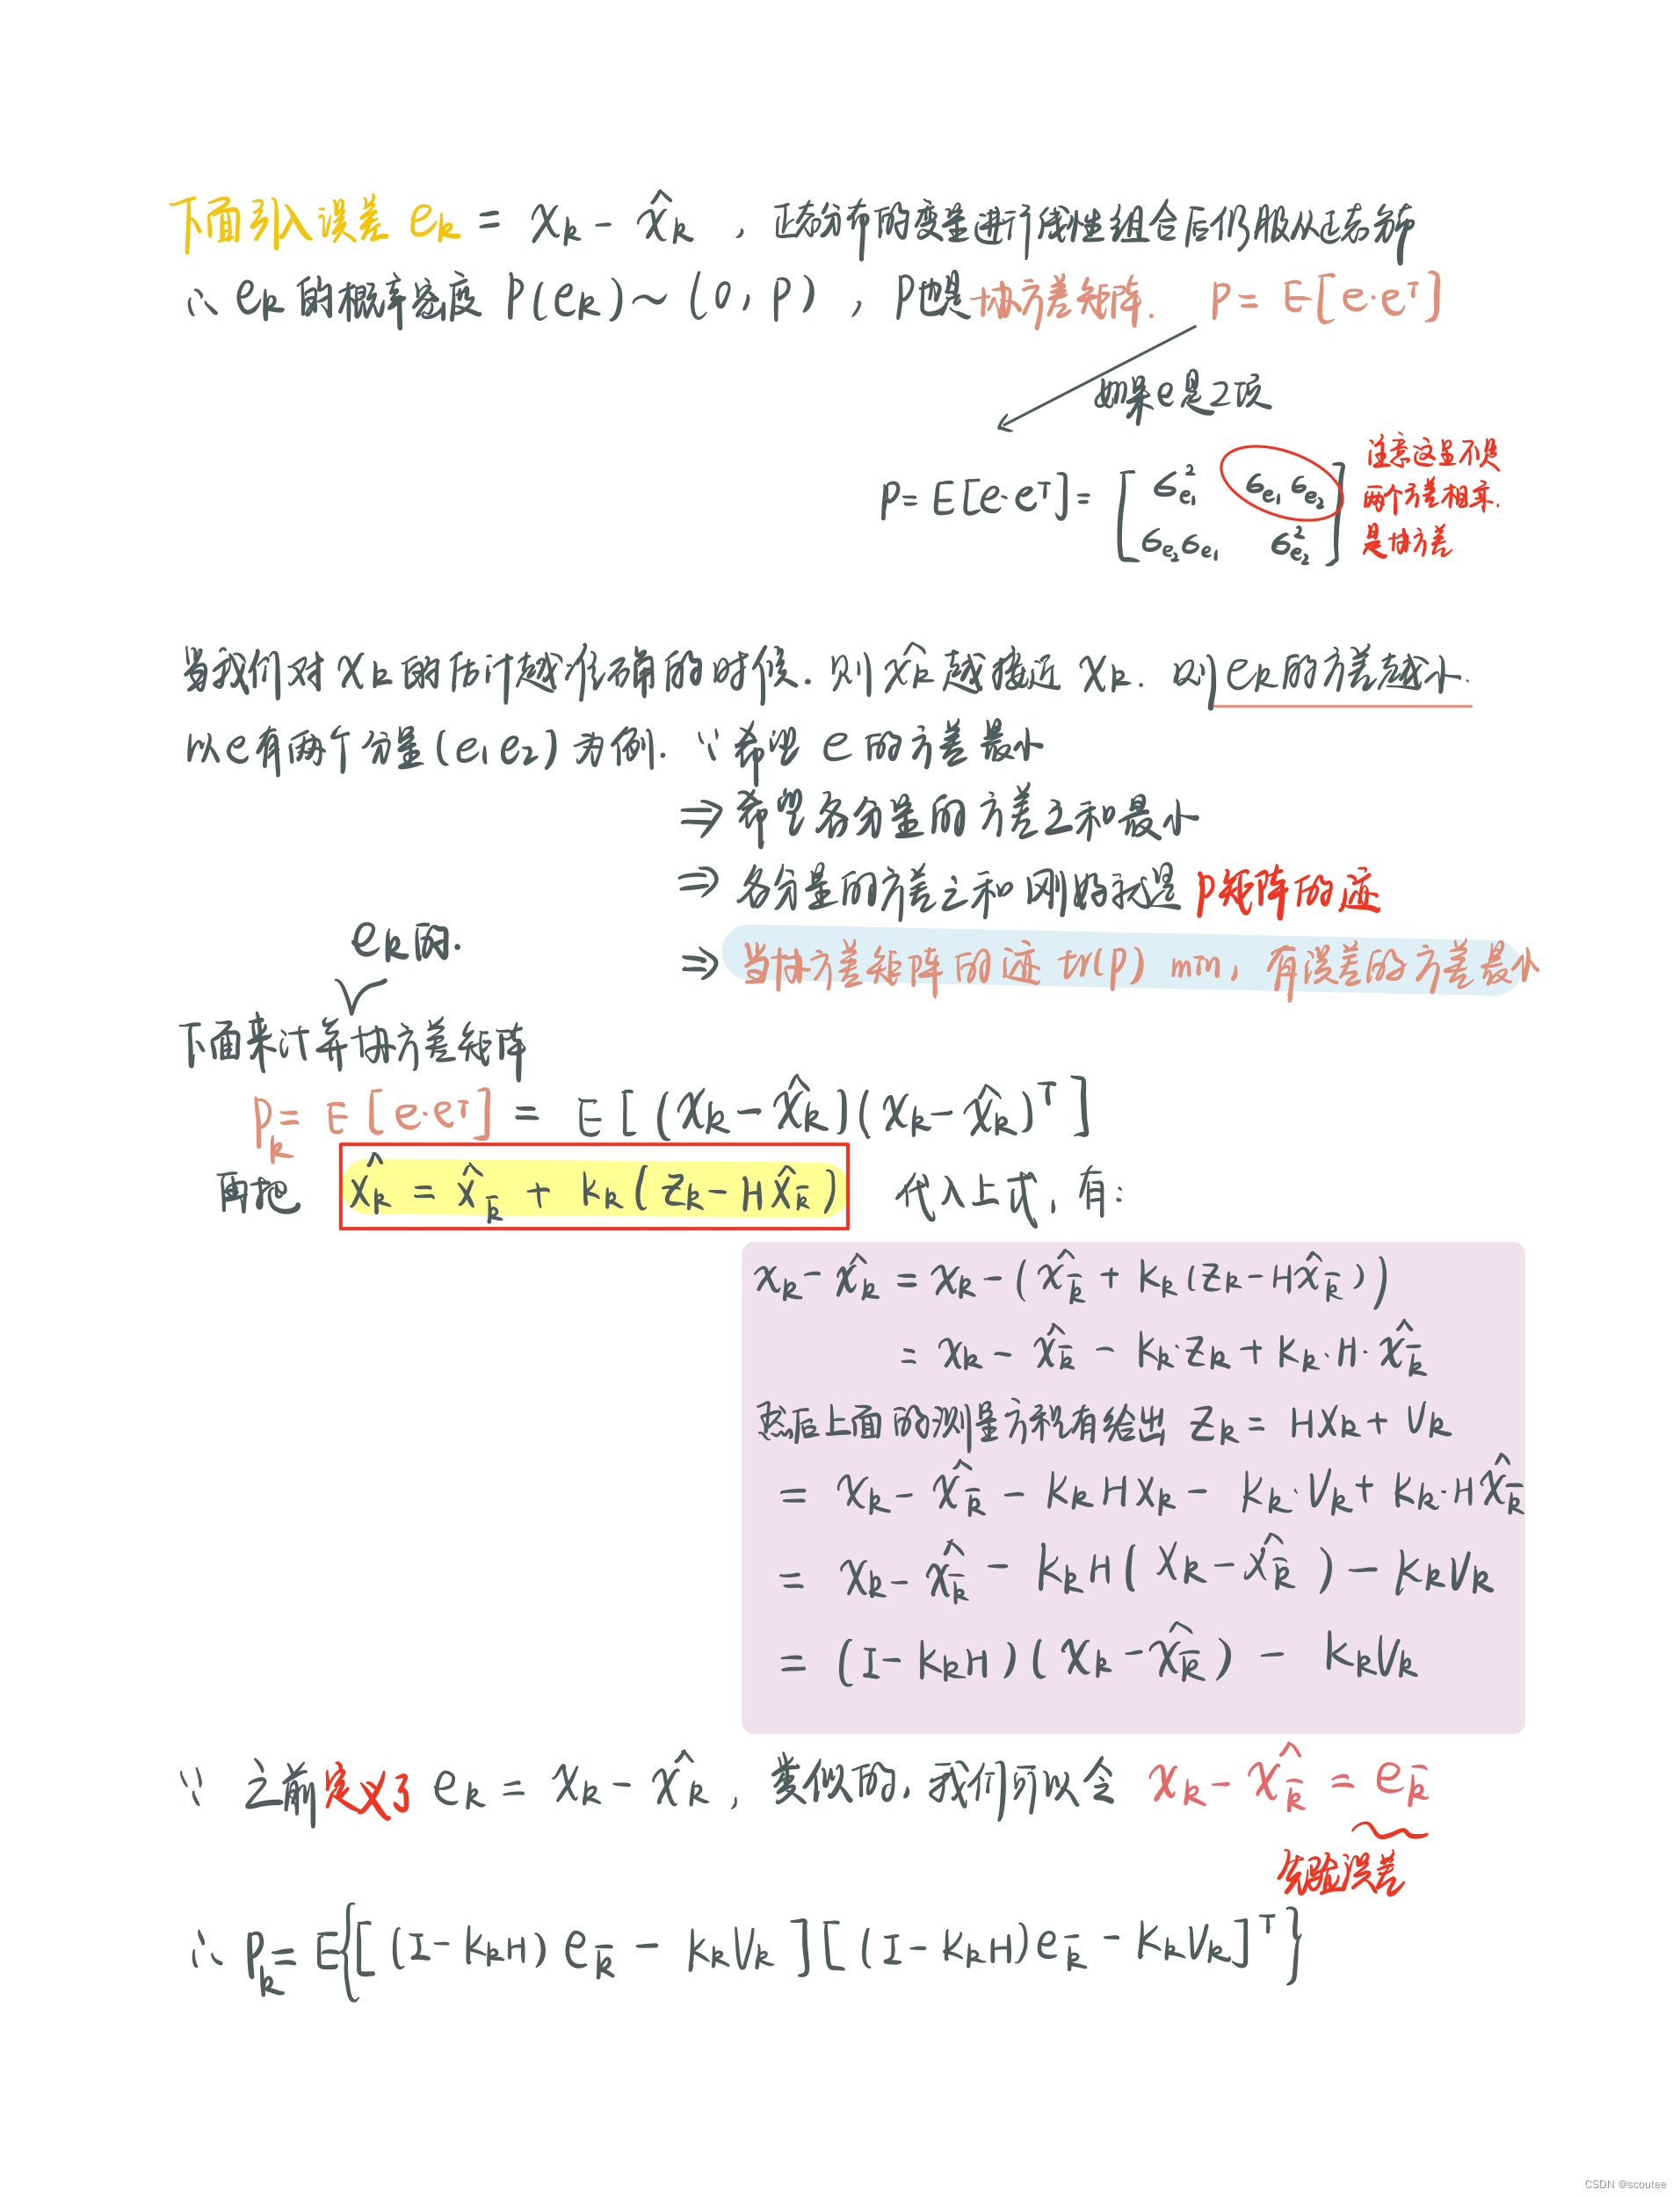 下面引入误差 eₖ = xₖ - x̂ₖ , 正态分布的变量进行线性组合后仍服从正态分布
∴ eₖ 的概率密度 P(eₖ) ~ (0, P) , P也是协方差矩阵. P = E[e·eᵀ]
如果e是2项
P = E[e·eᵀ] = [ σ²e₁ σe₁σe₂
σe₂σe₁ σ²e₂ ]
注意这里不是
两个方差相乘.
是协方差
当我们对 xₖ 的估计越准确的时候. 则 x̂ₖ 越接近 xₖ. 则 eₖ的方差越小.
以e有两个分量(e₁ e₂)为例. ∵ 希望 e 的方差最小
⇒ 希望各分量的方差之和最小
⇒ 各分量的方差之和刚好就是 P矩阵的迹
⇒ 当协方差矩阵的迹 tr(P) min, 有误差的方差最小
eₖ的.
下面来计算协方差矩阵
Pₖ = E[e·eᵀ] = E[(xₖ - x̂ₖ)(xₖ - x̂ₖ)ᵀ]
再把 x̂ₖ = x̂ₖ̄ + Kₖ(zₖ - Hx̂ₖ̄) 代入上式, 有:
xₖ - x̂ₖ = xₖ - (x̂ₖ̄ + Kₖ(zₖ - Hx̂ₖ̄))
= xₖ - x̂ₖ̄ - Kₖ·zₖ + Kₖ·H·x̂ₖ̄
然后上面的测量方程有给出 zₖ = Hxₖ + Vₖ
= xₖ - x̂ₖ̄ - KₖHxₖ - Kₖ·Vₖ + Kₖ·Hx̂ₖ̄
= xₖ - x̂ₖ̄ - KₖH(xₖ - x̂ₖ̄) - KₖVₖ
= (I - KₖH)(xₖ - x̂ₖ̄) - KₖVₖ
∵ 之前定义了 eₖ = xₖ - x̂ₖ, 类似的, 我们可以令 xₖ - x̂ₖ̄ = eₖ̄
先验误差
∴ Pₖ = E{[(I - KₖH)eₖ̄ - KₖVₖ][(I - KₖH)eₖ̄ - KₖVₖ]ᵀ}
CSDN @scoutee